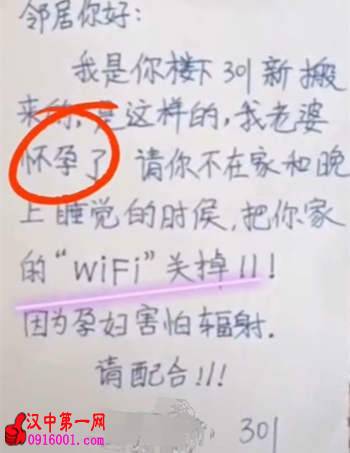 邻居你好:
我是你楼下301新搬
来的,是这样的,我老婆
怀孕了 请你不在家和晚
上睡觉的时候,把你家
的“WiFi”关掉!!!
因为孕妇害怕辐射.
请配合!!!
301
汉中第一网
0916001.com